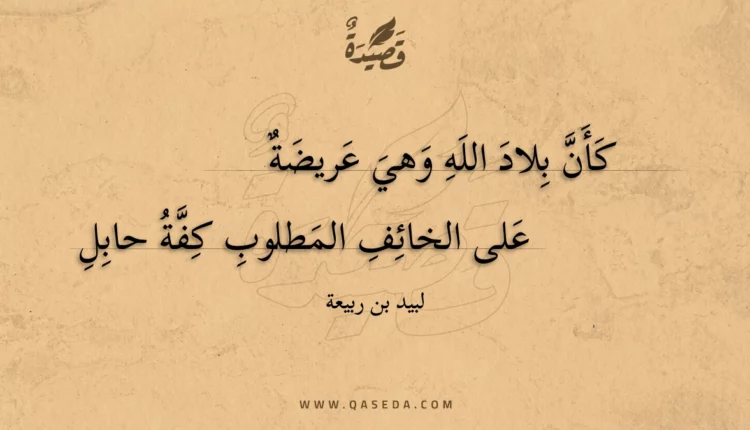 قَصِيدَةٌ
كَأَنَّ بِلادَ اللَهِ وَهيَ عَريضَةٌ
عَلى الخائِفِ المَطلوبِ كِفَّةُ حابِلِ
لبيد بن ربيعة
WWW.QASEDA.COM